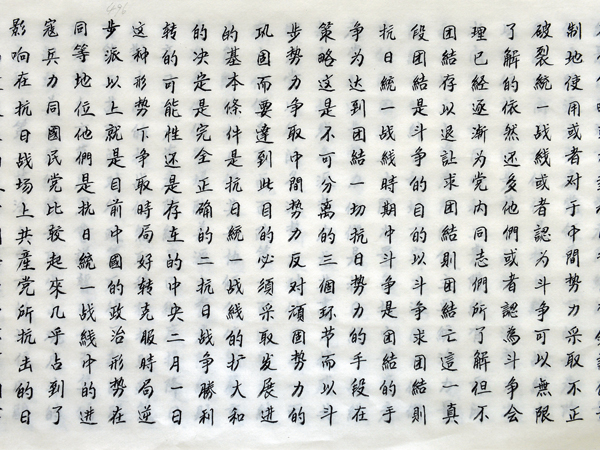 制地使用或者对于中間势力采取不正
破裂統一战线或者認为斗争可以無限
了解的依然还多他們或者認為斗争会
理已經逐漸为党内同志們所了解但不
团結存以退讓求团結則团結亡這一真
段团結是斗争的目的以斗争求团結則
抗日統一战线時期中斗争是团結的手
争为达到团結一切抗日势力的手段在
策略这是不可分离的三個环节而以斗
步势力争取中間势力反对頑固势力的
巩固而要達到此目的必須采取发展进
的基本條件是抗日統一战线的扩大和
的决定是完全正确的二抗日战争勝利
转的可能性还是存在的中央二月一日
这种形势下争取時局好转克服時局逆
步派以上就是目前中國的政治形势在
同等地位他們是抗日統一战线中的进
寇兵力同國民党比較起來几乎占到了
影响在抗日战场上共產党所抗击的日